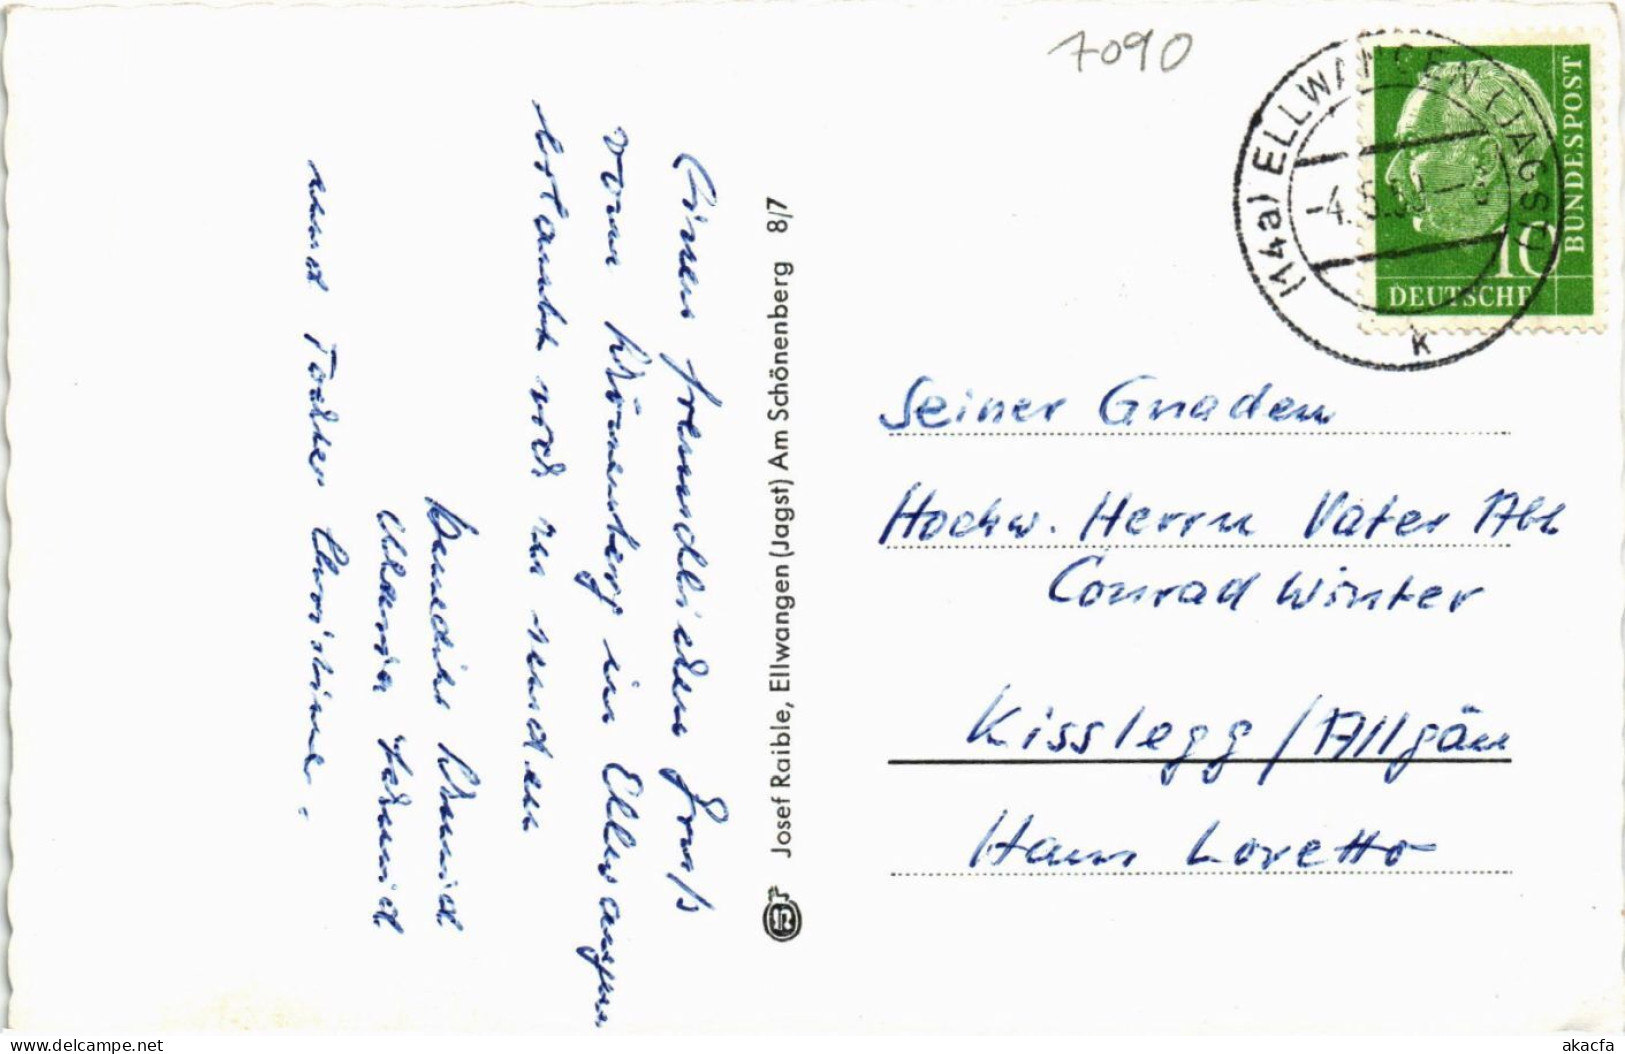 7090
(14a) ELLWANGEN (JAGST)
-4.5.59-8
k
BUNDESPOST
10
DEUTSCHE
Einen freundlichen Gruß
vom Schönenberg in Ellwangen
erlaubt noch zu senden
Benedikt Schmid
Schmid
und Tochter Christine.
Josef Raible, Ellwangen (Jagst) Am Schönenberg 8/7
Seiner Gnaden
Hochw. Herrn Vater Abt
Conrad Winter
Kisslegg / Allgäu
Haus Loretto
akacfa